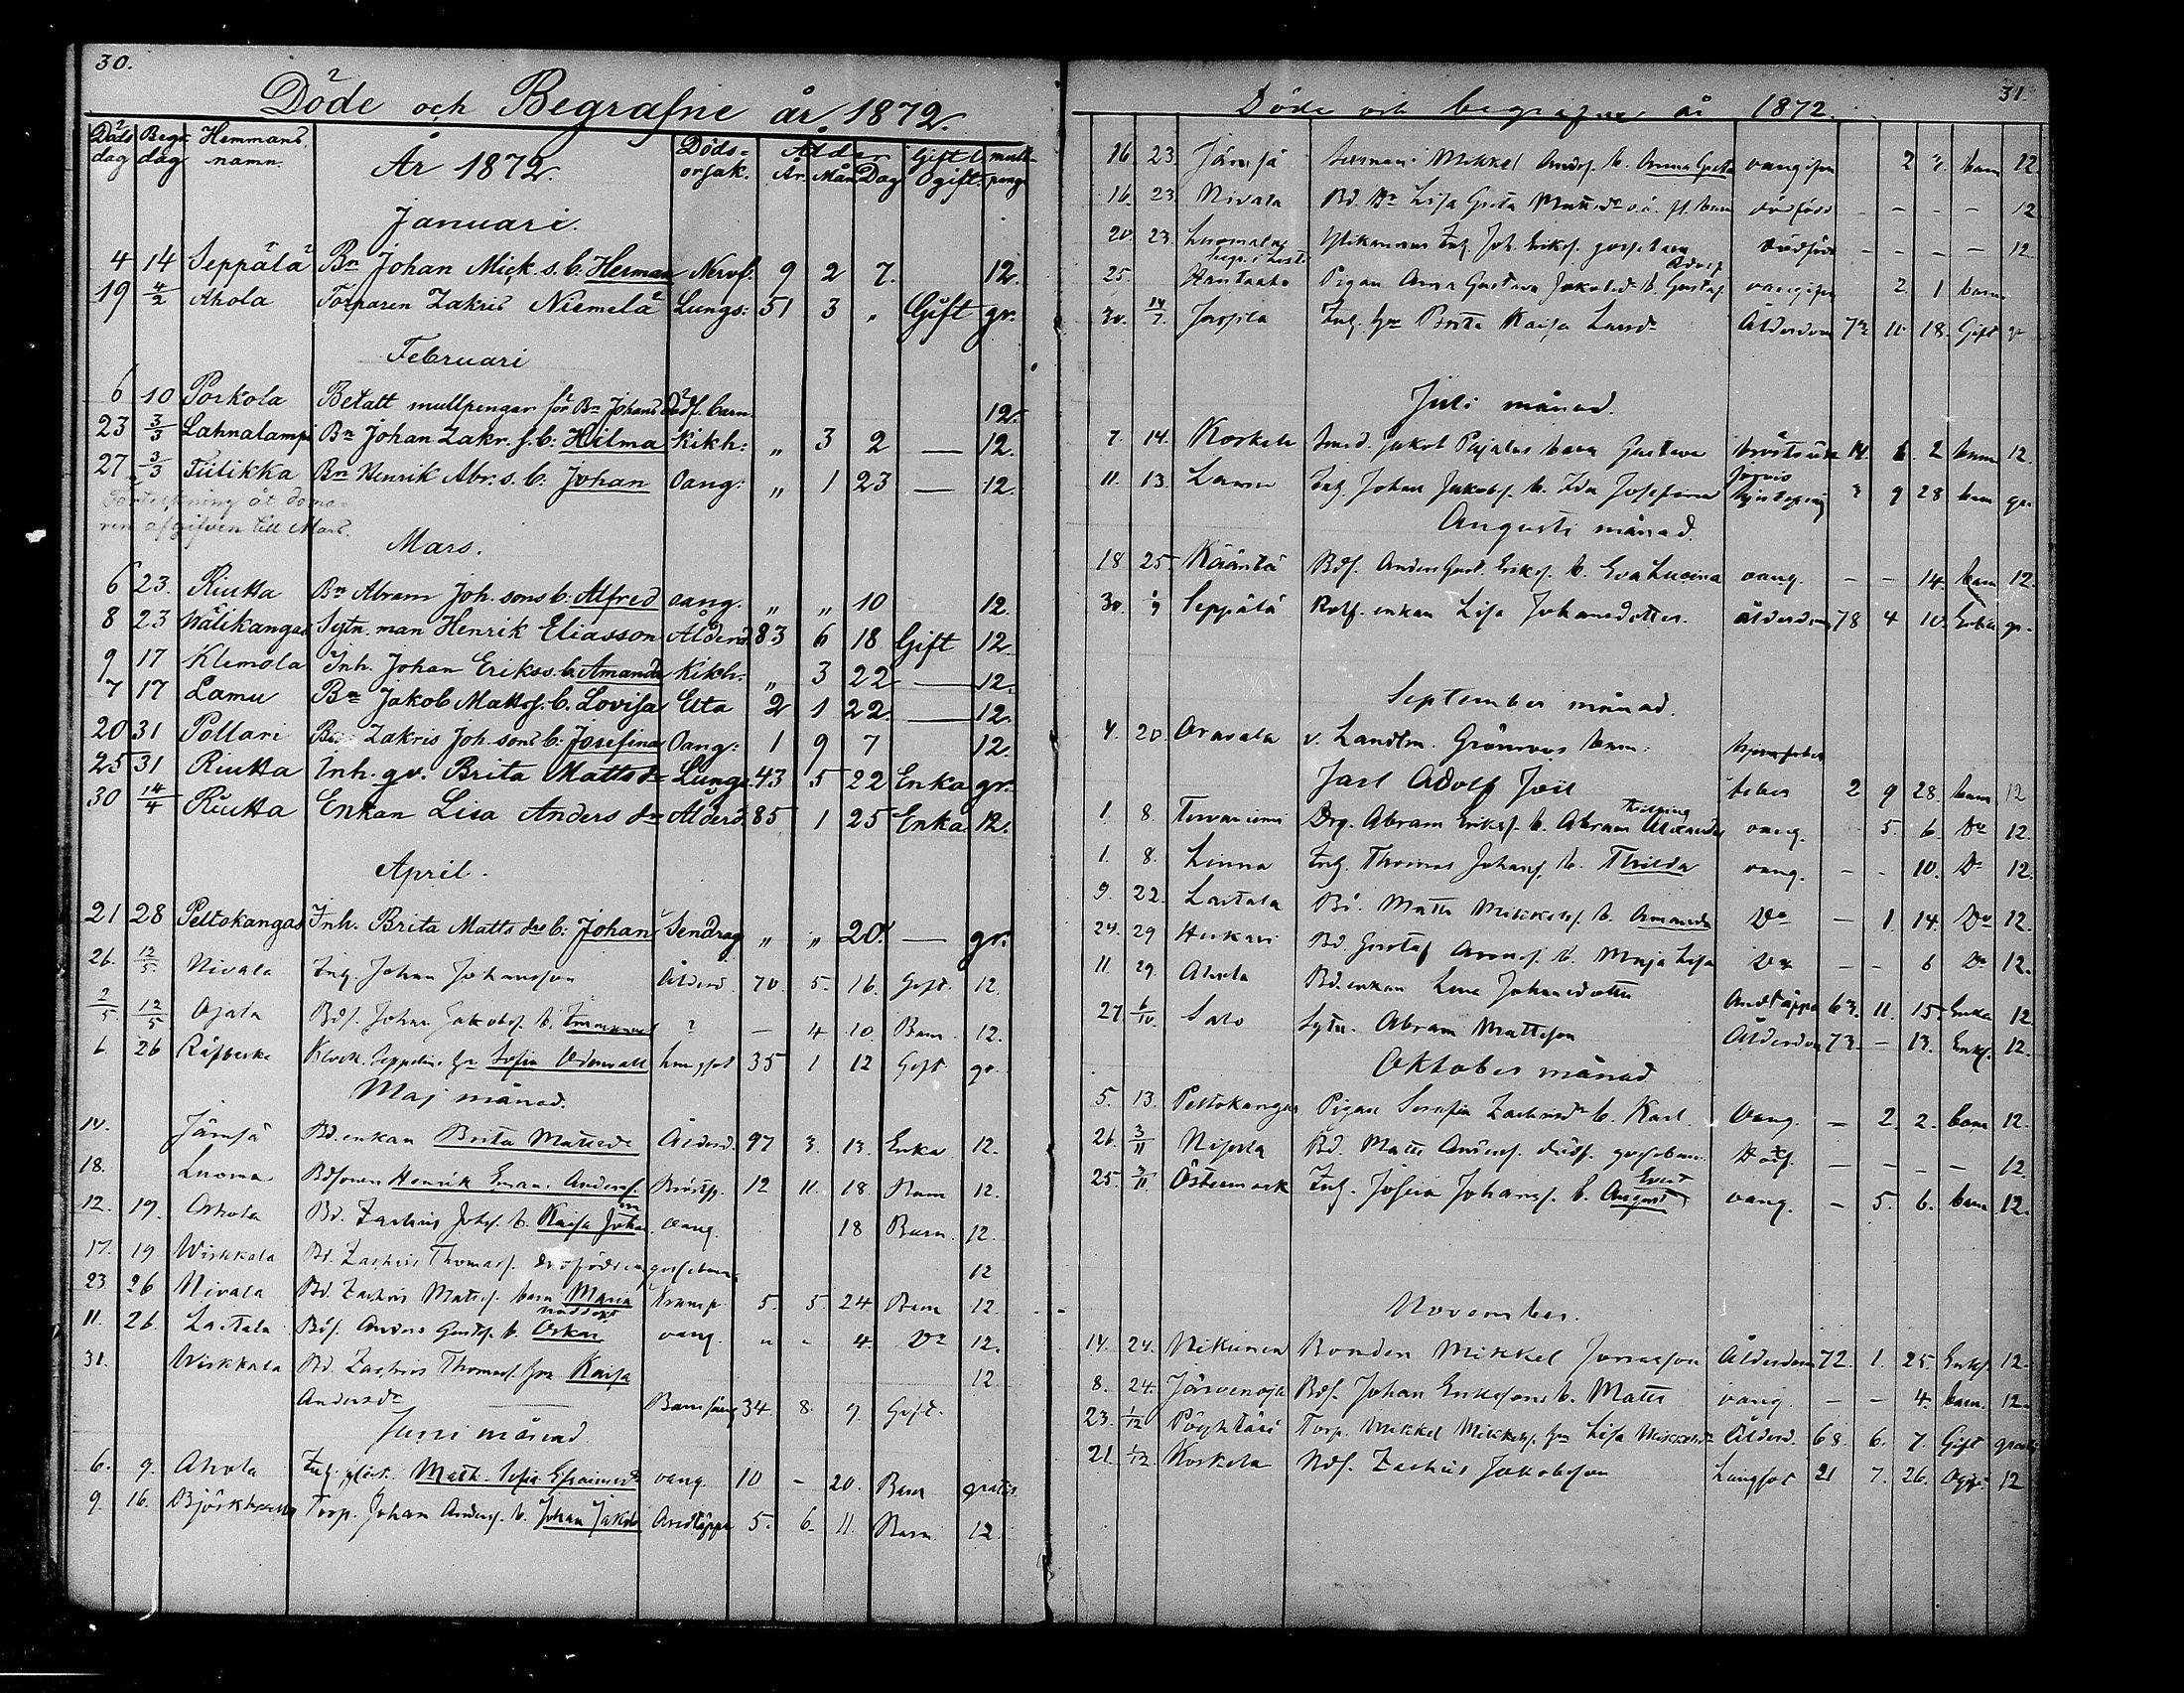 30.
Döde och Begrafne år 1872.
Döds dag Begr. dag Hemmans namn. År 1872. Dödsorsak. Ålder År. Mån. Dag Gift l. Ogift. mullpeng.
Januari.
4 14 Seppälä Bn Johan Mick. s. b. Herman Nervf. 9 2 7. 12.
19 4/2 Ahola Torparen Zakris Niemelä Lungs: 51 3 „ Gift gr.
Februari
6 10 Porkola Betalt mullpengar för Bn Johans Dödf. barn 12.
23 3/3 Lahnalampi Bn Johan Zakr. s. b: Hilma Kikh: „ 3 2 — 12.
27 3/3 Tiilikka Bn Henrik Abr. s. b: Johan Oang: „ 1 23 — 12.
Förteckning åt domaren afgifven till Mars.
Mars.
6 23. Riutta Bn Abram Joh. sons b: Alfred oang. „ „ 10 12.
8 23 Wälikangas Sytn. man Henrik Eliasson Ålderd. 83 6 18 Gift 12.
9 17 Klemola Inh. Johan Erikss. b. Amanda Kikh. „ 3 22 — 12.
7 17 Lamu Bn Jakob Mattss. b. Lovisa Eta 2 1 22. — 12.
20 31 Pollari Bn Zakris Joh. sons b: Josefina Oang: 1 9 7 12.
25 31 Riutta Inh. gv. Brita Matts dr Lungs. 43 5 22 Enka gr.
30 14/4 Riutta Enkan Lisa Anders dr Ålderd. 85 1 25 Enka 12.
April.
21 28 Peltokangas Inh. Brita Matts drs b: Johan Sendrag „ „ 20. — gr.
26. 12/5. Nivala Inh. Johan Johansson Ålderd. 70. 5. 16. Gift. 12.
2/5. 12/5 Ojala Bds. Johan Jakobs. b. ? — 4 10. Barn. 12.
6 26 Råfbacka Klock. hu Sofia lungsot 35 1 12 Gift. gr.
Maj månad.
14. Jämsä Bd.enkan Brita Mattsdr Ålderd. 97 3. 13. Enka. 12.
18. Luoma Bdsonen Henrik Eman. Anders. Bröstf. 12 11. 18. Barn 12.
12. 19. Bd. Zachris Johs. b. Kaisa oang. 18 Barn. 12.
17. 19 Wirkkala Bd. Zachris Thomass. gossebarn 12
23 26 Nivala Bd. Zachris Matts. barn Maria Kramp 5. 5. 24 Barn 12.
11. 26. Laitala Bds. Anders Gusts. b. Oskar oang. „ - 4. Do 12.
31. Wirkkala Bd. Zachris Thomass. hu Kaisa 12.
Andersdr Barnsäng 34. 8. 9. Gift.
Juni månad
6. 9. Ahola Inh. Math. Sofia Efraimsdr oang. 10 - 20. Barn gratis
9. 16. Torp. Johan Anders. b. Johan Jakob Andtäppa 5. 6. 11. Barn. 12
31.
Döde och begrafne år 1872.
16. 23. Jämsä Mikkel Anders. b. Anna Greta oangifven 2 barn 12.
16. 23. Nivala Bd. Lisa Greta barn dödfödd - - - - 12
20. 23. Inh. Joh. Eriks. gossebarn dödfödd - - - - 12.
25. Pigan Anna Gustava Jakobsdr b. Gustaf Adolf oangifven 2. 1 barn
30. 14/7. Jussila Inh. hu Brita Kaisa Larsdr Ålderdom 10 18. Gift gr
Juli månad.
7. 14. Koskela Smed. Jakob Pajalas barn Gustava 14. 6. 2 barn 12.
11. 13. Lamu Inh. Johan Jakobs. b. Ida Josefina 9 28 barn gr.
Augusti månad.
18 25. Kääntä Bds. Anders Gust. Eriks. b. Eva Lucina oang. - - 14. barn 12.
30. 1/9 Seppälä enkan Lisa Johansdotter. ålderdom 78 4 10. Enka gr.
September månad.
4. 20. Aravala v. Landtm. Grönroos barn:
Jarl Adolf Joel feber 2 9 28. barn 12
1. 8. Tervaniemi Drg. Abram Eriks. b. Abram Alexander tvilling oang. 5. 6. Do 12.
1. 8. Linna Inh. Thomas Johans. b. Thilda oang. - - 10. Do 12.
9. 22. Laitala Bd. Matts Mikkels. b. Amanda Do - 1. 14. Do 12.
24. 29 Bd. Gustaf b. Maja Lisa Do - - 6 Do 12.
11. 29. Ahola Bd.enkan Lena Johansdotter Andtäppa 63. 11. 15. Enka 12.
27. 6/10. Salo Sytn. Abram Mattsson Ålderdom 73. - 13. Enkl. 12.
Oktober månad
5. 13. Peltokangas Pigan Serafia Zachrisdr b. Karl. Oang. - 2. 2. barn 12.
26. 3/11 Bd. Matts Anders. dödf. gossebarn Dödf. - - - - 12.
25. 3/11. Östermark Inh. Josua Johans. b. August oang. - 5. 6. barn 12.
November.
14. 24. Nikunen Bonden Mikkel Jonasson Ålderdom 72. 1. 25. Enkl. 12.
8. 24. Järvenoja Bds. Johan Erikssons b. Matts oang. - - 4. barn. 12.
23. 1/12 Pöyhtäri Torp. Mikkel Mikkels. hu Lisa Ålderd. 68. 6. 7. Gift gratis
21. 1/12 Koskela Nds. Zachris Jakobsson Lungsot 21 7. 26. Ogift 12